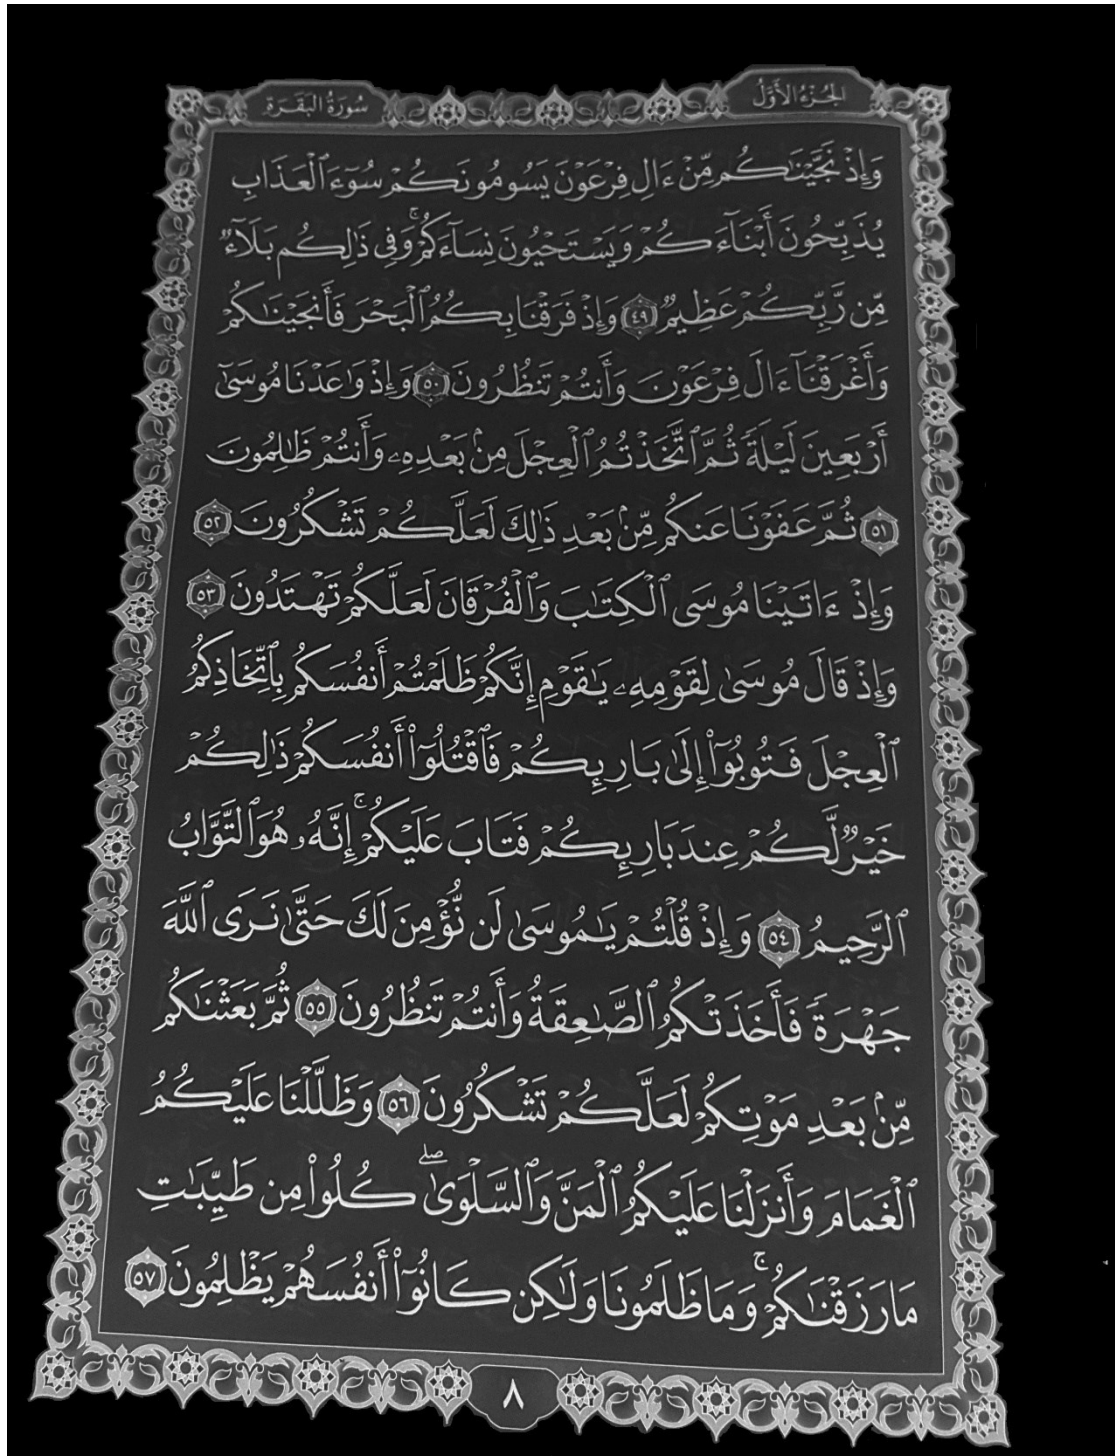 الجُزْءُ الأَوَّلُ سُورَةُ البَقَرَةِ
وَإِذْ نَجَّيْنَٰكُم مِّنْ ءَالِ فِرْعَوْنَ يَسُومُونَكُمْ سُوٓءَ ٱلْعَذَابِ
يُذَبِّحُونَ أَبْنَآءَكُمْ وَيَسْتَحْيُونَ نِسَآءَكُمْ ۚ وَفِى ذَٰلِكُم بَلَآءٌ
مِّن رَّبِّكُمْ عَظِيمٌ ٤٩ وَإِذْ فَرَقْنَا بِكُمُ ٱلْبَحْرَ فَأَنجَيْنَٰكُمْ
وَأَغْرَقْنَآ ءَالَ فِرْعَوْنَ وَأَنتُمْ تَنظُرُونَ ٥٠ وَإِذْ وَٰعَدْنَا مُوسَىٰٓ
أَرْبَعِينَ لَيْلَةً ثُمَّ ٱتَّخَذْتُمُ ٱلْعِجْلَ مِنۢ بَعْدِهِۦ وَأَنتُمْ ظَٰلِمُونَ
٥١ ثُمَّ عَفَوْنَا عَنكُم مِّنۢ بَعْدِ ذَٰلِكَ لَعَلَّكُمْ تَشْكُرُونَ ٥٢
وَإِذْ ءَاتَيْنَا مُوسَى ٱلْكِتَٰبَ وَٱلْفُرْقَانَ لَعَلَّكُمْ تَهْتَدُونَ ٥٣
وَإِذْ قَالَ مُوسَىٰ لِقَوْمِهِۦ يَٰقَوْمِ إِنَّكُمْ ظَلَمْتُمْ أَنفُسَكُم بِٱتِّخَاذِكُمُ
ٱلْعِجْلَ فَتُوبُوٓا۟ إِلَىٰ بَارِئِكُمْ فَٱقْتُلُوٓا۟ أَنفُسَكُمْ ذَٰلِكُمْ
خَيْرٌ لَّكُمْ عِندَ بَارِئِكُمْ فَتَابَ عَلَيْكُمْ ۚ إِنَّهُۥ هُوَ ٱلتَّوَّابُ
ٱلرَّحِيمُ ٥٤ وَإِذْ قُلْتُمْ يَٰمُوسَىٰ لَن نُّؤْمِنَ لَكَ حَتَّىٰ نَرَى ٱللَّهَ
جَهْرَةً فَأَخَذَتْكُمُ ٱلصَّٰعِقَةُ وَأَنتُمْ تَنظُرُونَ ٥٥ ثُمَّ بَعَثْنَٰكُم
مِّنۢ بَعْدِ مَوْتِكُمْ لَعَلَّكُمْ تَشْكُرُونَ ٥٦ وَظَلَّلْنَا عَلَيْكُمُ
ٱلْغَمَامَ وَأَنزَلْنَا عَلَيْكُمُ ٱلْمَنَّ وَٱلسَّلْوَىٰ ۖ كُلُوا۟ مِن طَيِّبَٰتِ
مَا رَزَقْنَٰكُمْ ۚ وَمَا ظَلَمُونَا وَلَٰكِن كَانُوٓا۟ أَنفُسَهُمْ يَظْلِمُونَ ٥٧
٨